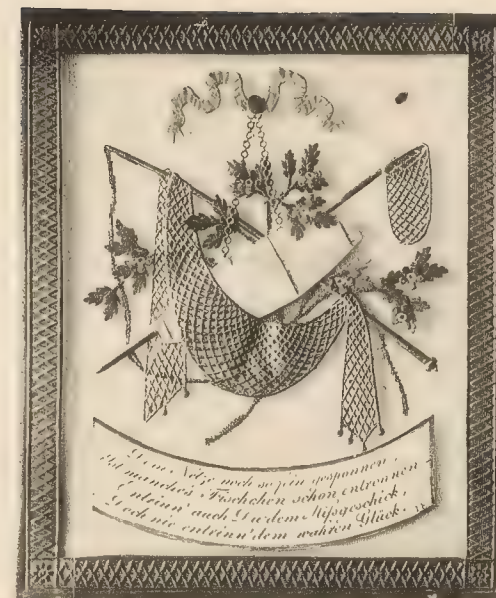 Dem Netze noch so fein gesponnen,
Ist manches Fischchen schon entronnen
Entrinn' auch Du dem Mißgeschick,
Doch nie entrinn' dem wahren Glück.